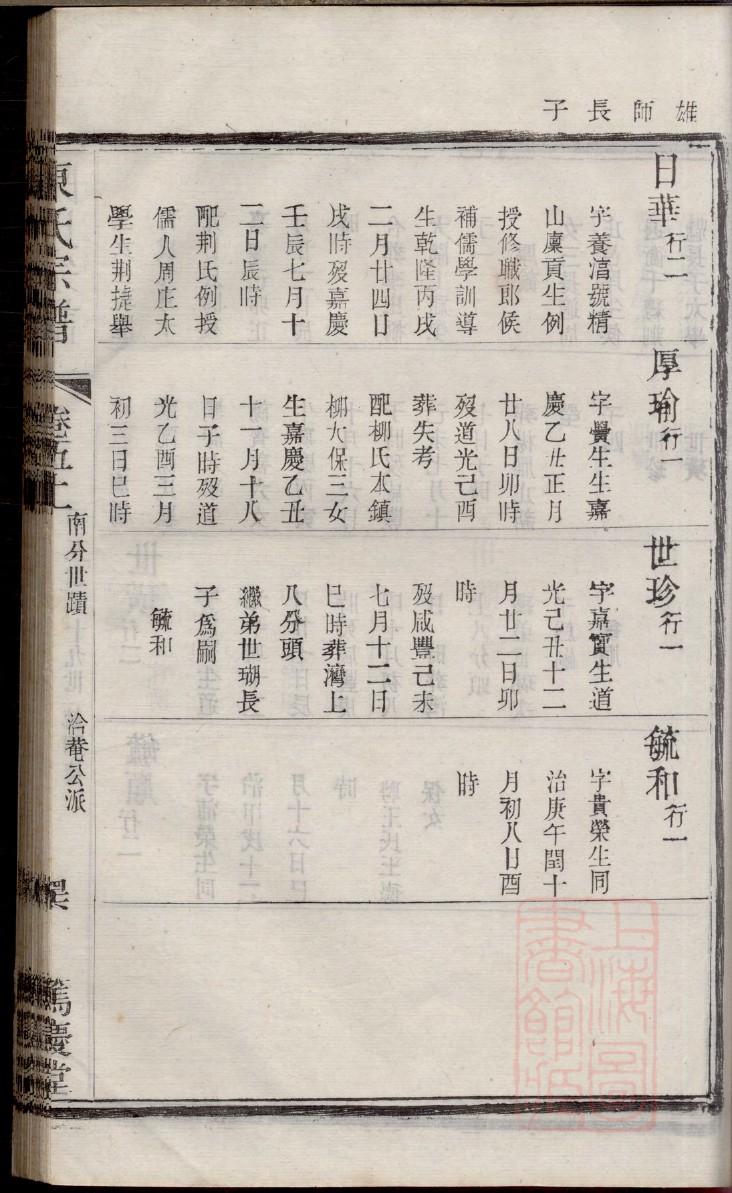 雄師長子
日華行二
字養濇號精
山廩貢生例
授修職郎候
補儒學訓導
生乾隆丙戌
二月廿四日
戌時歿嘉慶
壬辰七月十
二日辰時
配荆氏例授
儒人周庄太
學生荆捷舉
厚瑜行一
字釁生生嘉
慶乙丑正月
廿八日卯時
歿道光己酉
葬失考
配柳氏本鎮
柳大保三女
生嘉慶乙丑
十一月十八
日子時歿道
光乙酉三月
初三日巳時
世珍行一
字嘉寳生道
光己丑十二
月廿二日卯
時
歿咸豐己未
七月十二日
巳時葬灣上
八分頭
繼弟世瑚長
子爲嗣
毓和
毓和行一
字貴榮生同
治庚午閏十
月初八日酉
時
陳氏宗譜
卷五上
南分世蹟
十九世
洽菴公派
篤慶堂
上海圖書館藏